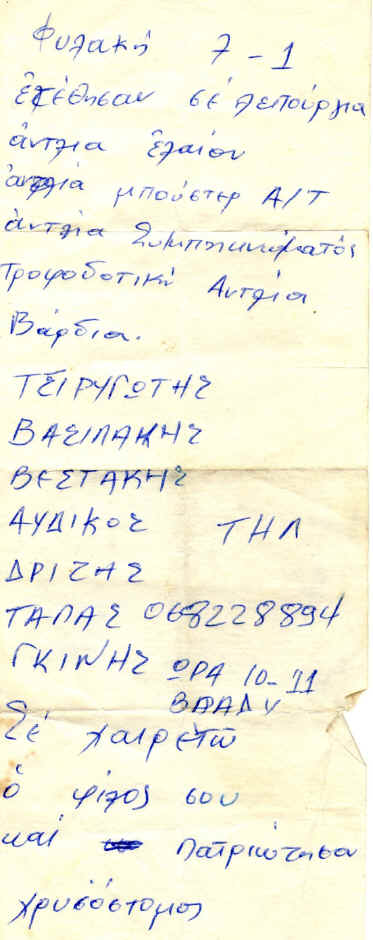 Φυλακή 7 - 1
ἐτέθησαν σέ λειτούργια
ἀντλια ἐλαίου
ἀντλιά μπούστερ Α/Τ
ἀντλία Συμπηκνώματός
Τροφοδοτική Αντλία
Βάρδια.
ΤΣΙΡΥΓΩΤΗΣ
ΒΑΣΙΛΑΚΗΣ
ΒΕΣΤΑΚΗΣ
ΑΥΔΙΚΟΣ ΤΗΛ
ΔΡΙΖΗΣ
ΤΑΠΑΣ 068228894
ΓΚΙΝΗΣ ΩΡΑ 10-11
ΒΡΑΔΥ
Σέ χαιρετῶ
ὁ φίλος σου
καί πατριώτησου
χρυσόστομος